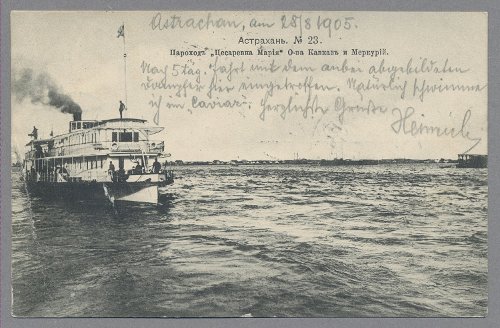 Astrachan, am 25/8 1905.
Астрахань. № 23.
Пароходъ „Цесаревна Марія“ О-ва Кавказъ и Меркурій.
Nach 5 tag. Fahrt mit dem anbei abgebildeten
Dampfer hier eingetroffen. Natürlich schwimme
ich im „Caviar“. Herzlichste Grüße
Heinrich